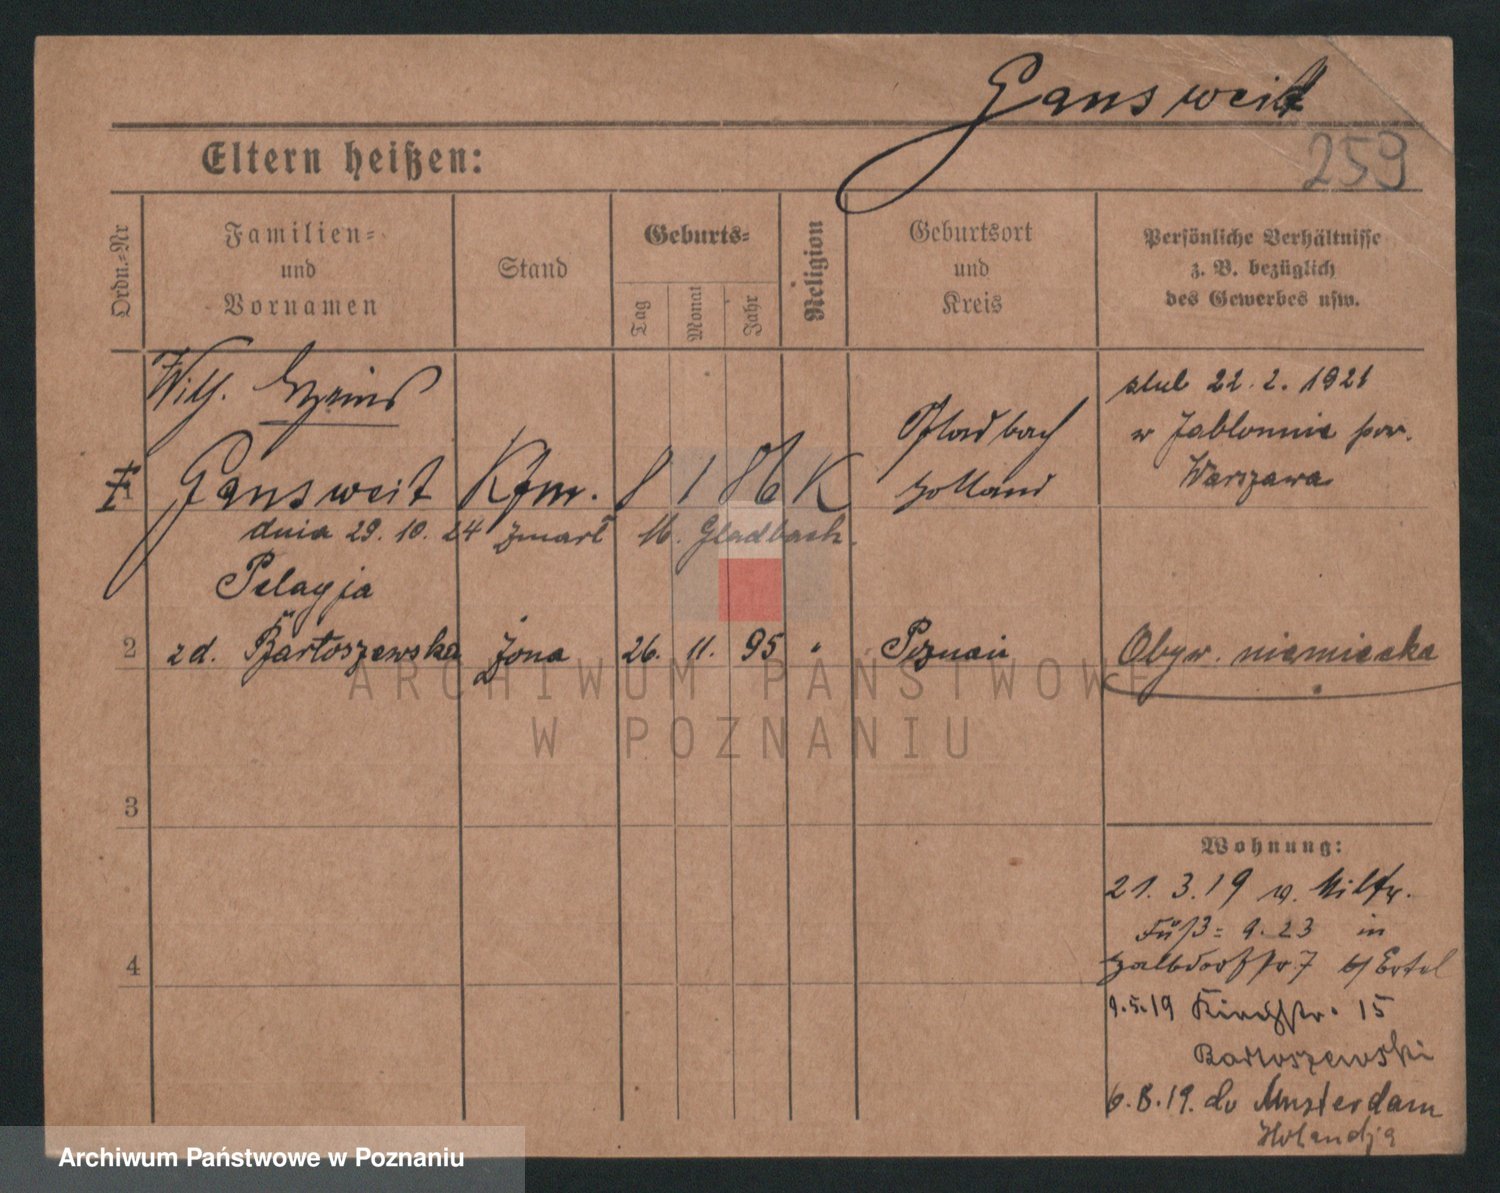 Gansweit
259
Eltern heißen:
Ordn.-Nr
Familien-
und
Vornamen
Stand
Geburts-
Tag
Monat
Jahr
Religion
Geburtsort
und
Kreis
Persönliche Verhältnisse
z. B. bezüglich
des Gewerbes usw.
Wilh. Heinr
1 Gansweit Kfm. 8 1 86 K
Gladbach
Holland
ślub 22.2.1921
w Jabłonnie pow.
Warszawa
dnia 29.10.24 zmarł M. Gladbach.
Pelagja
2 zd. Bartoszewska żona 26. 11. 95 " Poznań Obyw. niemiecka
3
4
Wohnung:
21.3.19 v. Miltr.
Füß= 9.23 in
Halbdorfstr 7 b/ Ertel
9.5.19 Kirchstr. 15
Bartoszewski
6.8.19. do Amsterdam
Holandja
ARCHIWUM PAŃSTWOWE
W POZNANIU
Archiwum Państwowe w Poznaniu